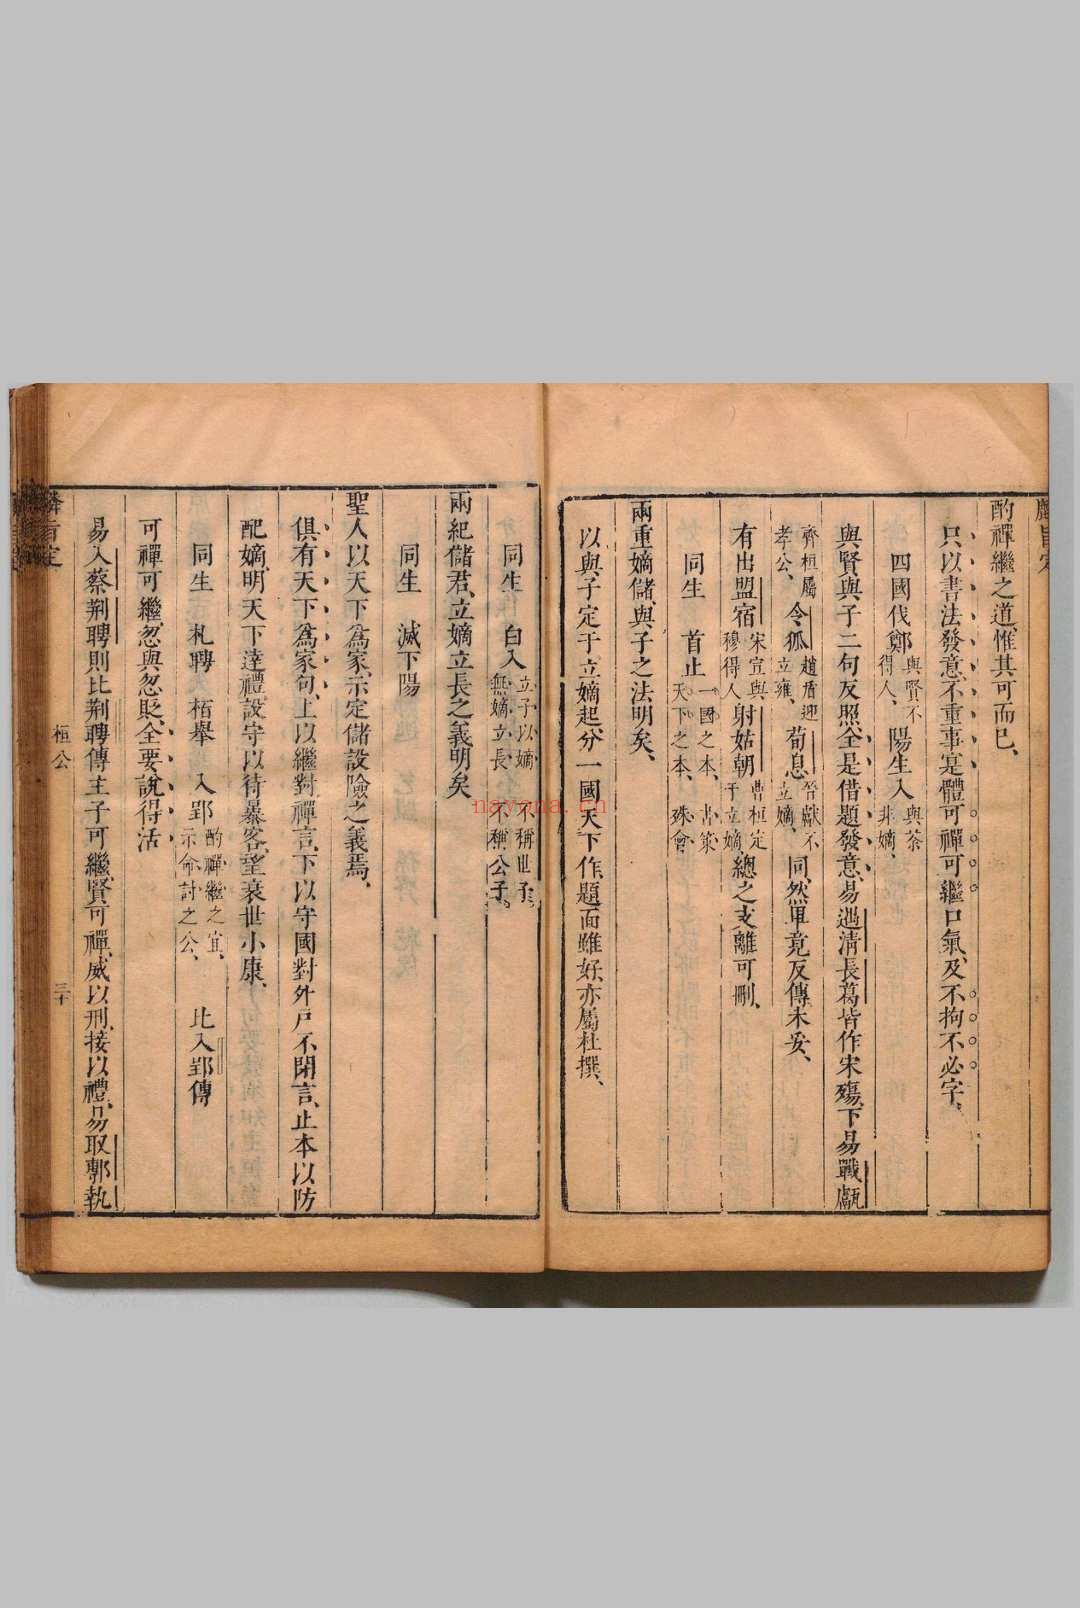 酌禪繼之道惟其可而已、
只以書法發意、不重事寔、體可禪可繼口氣、及不拘不必字、
四國伐鄭 與賢不得人、 陽生入 與荼非嫡、
與賢與子二句反照、全是借題發意、易遇清長葛皆作宋殤、下易戰甗
齊桓屬孝公、 令狐 趙盾迎立雍、 荀息 晉獻不立嫡、 同、然單竟反傳未妥、
有出盟宿 宋宣與穆得人 射姑朝 曹桓定于立嫡、 總之支離可刪、
同生 首止 一國之本、天下之本、 書策 殊會
兩重嫡儲、與子之法明矣、
以與子定于立嫡起、分一國天下作、題面雖好、亦屬杜撰、
同生 白入 立子以嫡、無嫡立長、 不稱世子、不稱公子、
兩紀儲君、立嫡立長之義明矣
同生 滅下陽
聖人以天下為家、示定儲設險之義焉、
俱有天下為家句、上以繼對禪言、下以守國對外戶不閉言、止本以防
配嫡、明天下達禮、設守以待暴客、望衰世小康、
同生 札聘 栢舉 入郢 酌禪繼之宜、示命討之公、 比入郢傳
可禪可繼、忽與忽貶、全要說得活
易入蔡荆聘、則比荆聘傳主、子可繼、賢可禪、威以刑、接以禮、易取鄆執
桓公
三十
nayona.cn